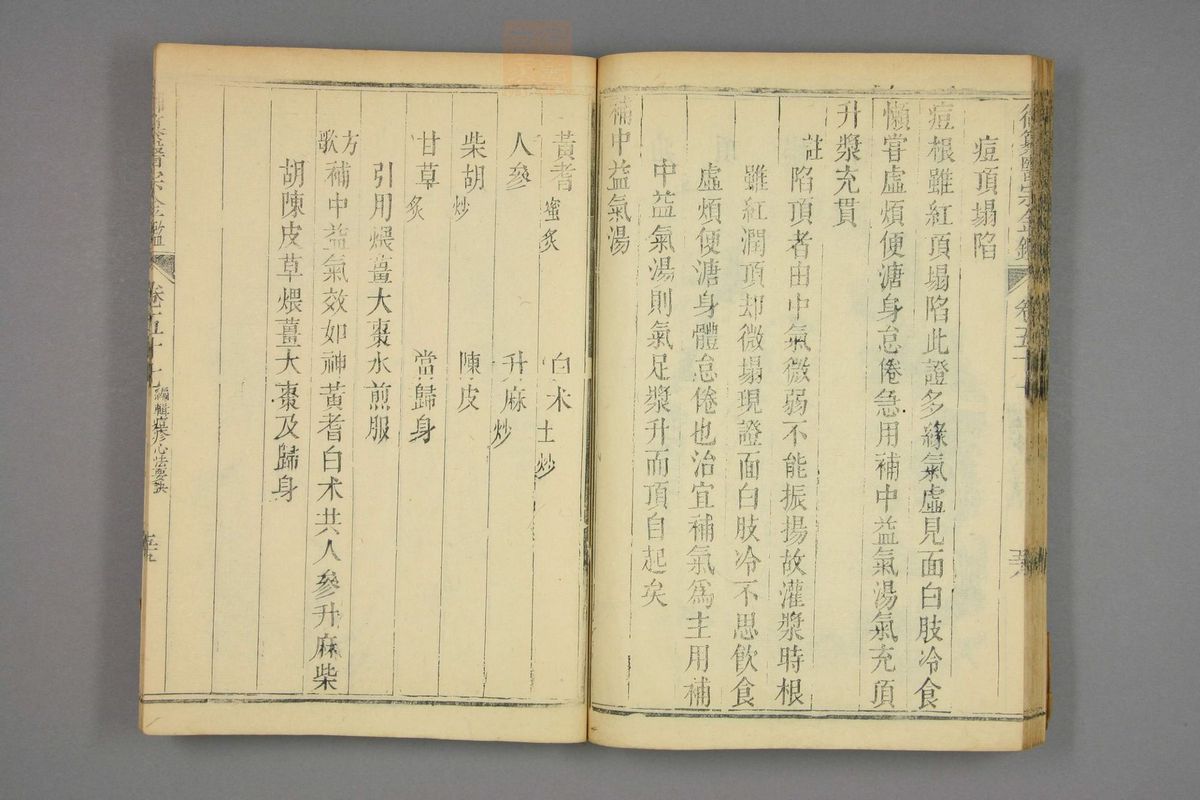 痘頂塌陷
痘根雖紅頂塌陷此證多緣氣虛見面白肢冷食
懶嘗虛煩便溏身怠倦急用補中益氣湯氣充頂
升漿充貫
註陷頂者由中氣微弱不能振揚故灌漿時根
雖紅潤頂却微塌現證面白肢冷不思飲食
虛煩便溏身體怠倦也治宜補氣爲主用補
中益氣湯則氣足漿升而頂自起矣
補中益氣湯
黃耆蜜炙 白术土炒
人參 升麻炒
柴胡炒 陳皮
甘草炙 當歸身
引用煨薑大棗水煎服
方歌補中益氣效如神黃耆白术共人參升麻柴
胡陳皮草煨薑大棗及歸身
醫宗金鑑 卷五十七 編輯痘疹心法要訣